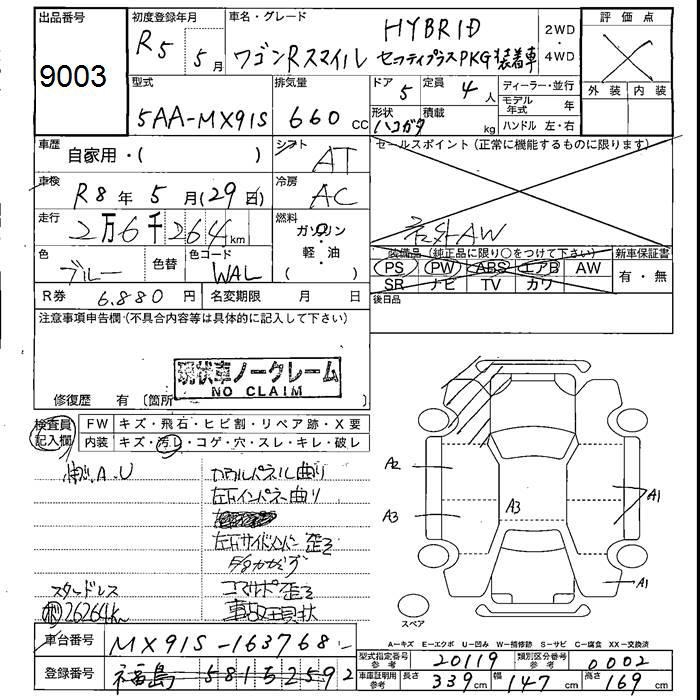 出品番号
9003
初度登録年月
R5年 5月
車名・グレード
HYBRID
ワゴンRスマイル セーフティプラスPKG装着車
2WD
・
4WD
評価点
外装 内装
型式
5AA-MX91S
排気量
660 cc
ドア
5
定員
4人
形状
ハコガタ
積載
kg
ディーラー・並行
モデル年式 年
ハンドル 左・右
車歴
自家用・( )
シフト
AT
セールスポイント(正常に機能するものに限ります)
車検
R8年 5月(29日)
冷房
AC
走行
2万6千264km
燃料
ガソリン
・
軽・油
( )
社外AW
色
ブルー
色替
色コード
WAL
装備品(純正品に限り○をつけて下さい)
PS PW ABS エアB AW
SR ナビ TV カワ
新車保証書
有・無
R券 6,880円
名変期限 月 日
後日品
注意事項申告欄(不具合内容等は具体的に記入して下さい)
現状車ノークレーム
NO CLAIM
修復歴 有〔箇所 〕
検査員
記入欄
FW キズ・飛石・ヒビ割・リペア跡・X要
内装 キズ・汚レ・コゲ・穴・スレ・キレ・破レ
A.U
カウルパネル曲り
左右インパネ曲り
左右サイドメンバー歪ミ
コアサポ歪ミ
事故現状
スタッドレス
26264km
A2
A3
A3
A1
A1
スペア
A=キズ E=エクボ U=凹み W=補修跡 S=サビ C=腐食 XX=交換済
車台番号
MX91S-163768
型式指定番号
参考
20119
類別区分番号
参考
0002
登録番号
福島 581 5 2592
車庫証明用
参考
長さ 339cm 幅 147cm 高さ 169cm